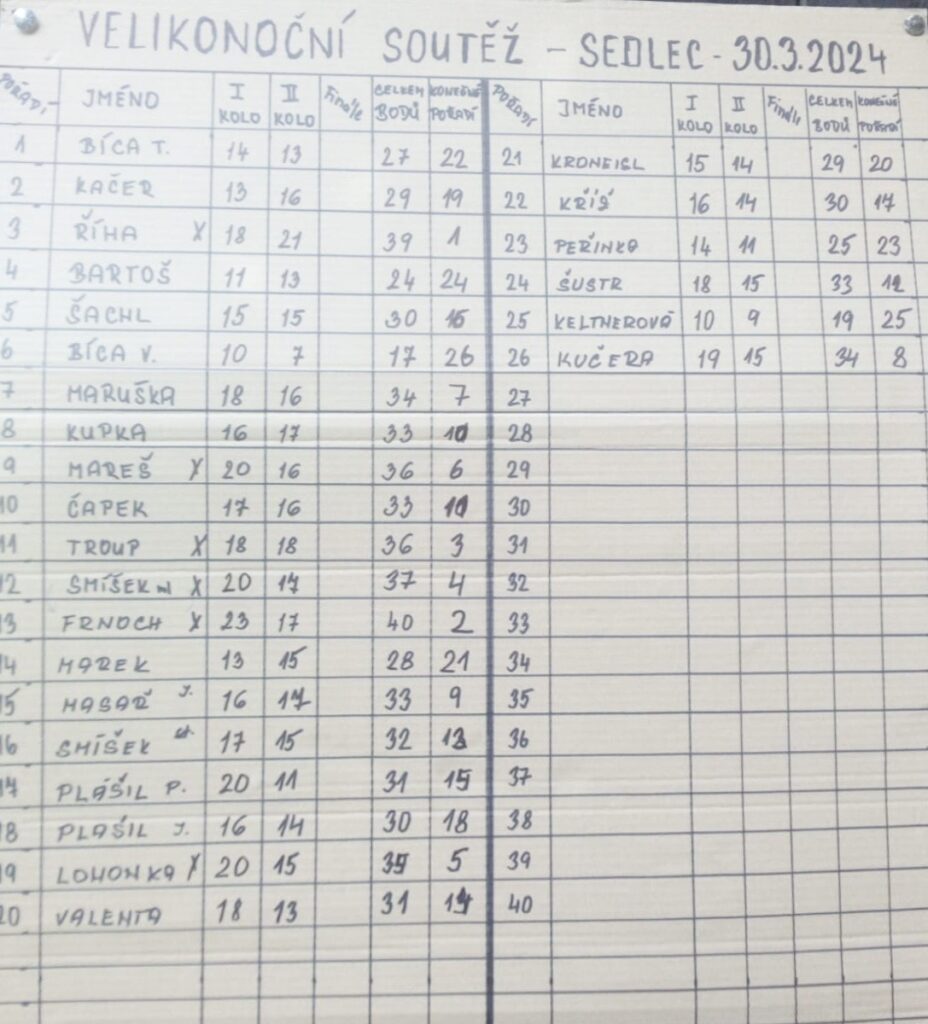 VELIKONOČNÍ SOUTĚŽ - SEDLEC - 30.3.2024
POŘADÍ JMÉNO I KOLO II KOLO Finále CELKEM BODŮ KONEČNÉ POŘADÍ POŘADÍ JMÉNO I KOLO II KOLO Finále CELKEM BODŮ KONEČNÉ POŘADÍ
1 BÍCA T. 14 13 27 22 21 KRONEISL 15 14 29 20
2 KAČER 13 16 29 19 22 KŘÍŽ 16 14 30 17
3 ŘÍHA X 18 21 39 1 23 PEŘINKA 14 11 25 23
4 BARTOŠ 11 13 24 24 24 ŠUSTR 18 15 33 12
5 ŠACHL 15 15 30 16 25 KELTNEROVÁ 10 9 19 25
6 BÍCA V. 10 7 17 26 26 KUČERA 19 15 34 8
7 MARUŠKA 18 16 34 7 27
8 KUPKA 16 17 33 10 28
9 MAREŠ X 20 16 36 6 29
10 ČAPEK 17 16 33 30
11 TROUP X 18 18 36 3 31
12 SMÍŠEK ml X 20 17 37 4 32
13 FRNOCH X 23 17 40 2 33
14 MAREK 13 15 28 21 34
15 MASAŘ J. 16 17 33 9 35
16 SMÍŠEK st. 17 15 32 13 36
17 PLÁŠIL P. 20 11 31 15 37
18 PLAŠIL J. 16 14 30 18 38
19 LOHONKA X 20 15 35 5 39
20 VALENTA 18 13 31 14 40